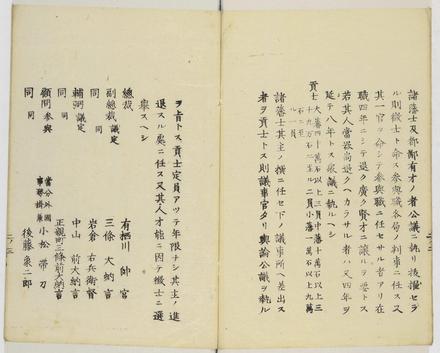 諸藩士及都鄙有才ノ者公議ニ執リ抜擢セラ
ル則徴士ト命ス参与職各局ノ判事ニ任ス又
其一官ヲ命シテ参与職ニ任セサル者アリ在
職四年ニシテ退ク広ク賢才ニ譲ルヲ要トス
若其人当器尚退クヘカラサル者ハ又四年ヲ
延テ八年トス衆議ニ執ルヘシ
貢士 大藩四十万石以上三員中藩十万石以上三
十九万石ニ至ル二員小藩一万石以上九万
石ニ至
ル一員
諸藩士其主ノ撰ニ任セ下ノ議事所ヘ差出ス
者ヲ貢士トス則議事官タリ輿論公議ヲ執ル
ヲ旨トス貢士定員アツテ年限ナシ其主ノ進
退スル処ニ任ス又其人才能ニ因テ徴士ニ選
挙スヘシ
総裁 有栖川帥宮
副総裁 議定 三條大納言
同 同 岩倉右兵衛督
輔弼 議定 中山前大納言
同 同 正親町三條前大納言
顧問 参与 当分外国事務掛兼 小松帯刀
同 同 後藤象二郎